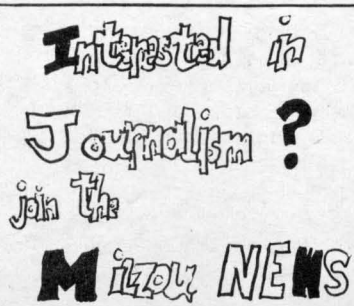 Interested in
Journalism ?
join the
Milzow NEWS